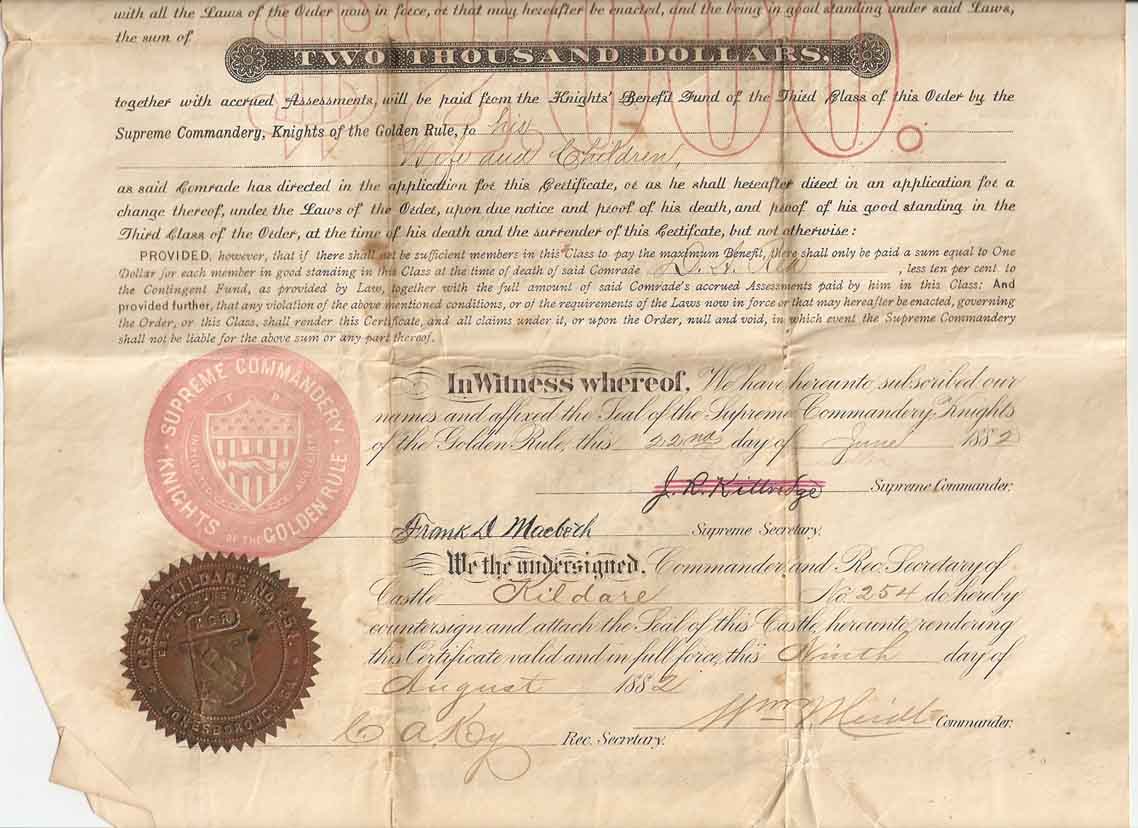 with all the Laws of the Order now in force, or that may hereafter be enacted, and the being in good standing under said Laws,
the sum of
TWO THOUSAND DOLLARS,
$2000.
together with accrued Assessments, will be paid from the Knights' Benefit Fund of the Third Class of this Order by the
Supreme Commandery, Knights of the Golden Rule, to his
Wife and Children,
as said Comrade has directed in the application for this Certificate, or as he shall hereafter direct in an application for a
change thereof, under the Laws of the Order, upon due notice and proof of his death, and proof of his good standing in the
Third Class of the Order, at the time of his death and the surrender of this Certificate, but not otherwise:
PROVIDED, however, that if there shall not be sufficient members in this Class to pay the maximum Benefit, there shall only be paid a sum equal to One
Dollar for each member in good standing in this Class at the time of death of said Comrade D. A. , less ten per cent to
the Contingent Fund, as provided by Law, together with the full amount of said Comrade's accrued Assessments paid by him in this Class: And
provided further, that any violation of the above mentioned conditions, or of the requirements of the Laws now in force or that may hereafter be enacted, governing
the Order, or this Class, shall render this Certificate, and all claims under it, or upon the Order, null and void, in which event the Supreme Commandery
shall not be liable for the above sum or any part thereof.
In Witness whereof, We have hereunto subscribed our
names and affixed the Seal of the Supreme Commandery, Knights
of the Golden Rule, this 22nd day of June 1882
J. R. Kittridge Supreme Commander.
Frank D Macbeth Supreme Secretary.
SUPREME COMMANDERY
KNIGHTS OF THE GOLDEN RULE
We the undersigned, Commander and Rec. Secretary of
Castle Kildare No. 254 do hereby
countersign and attach the Seal of this Castle, hereunto, rendering
this Certificate valid and in full force, this Ninth day of
August 1882
Wm Commander.
C A Rec. Secretary.
CASTLE KILDARE NO. 254
JONESBORO, GA